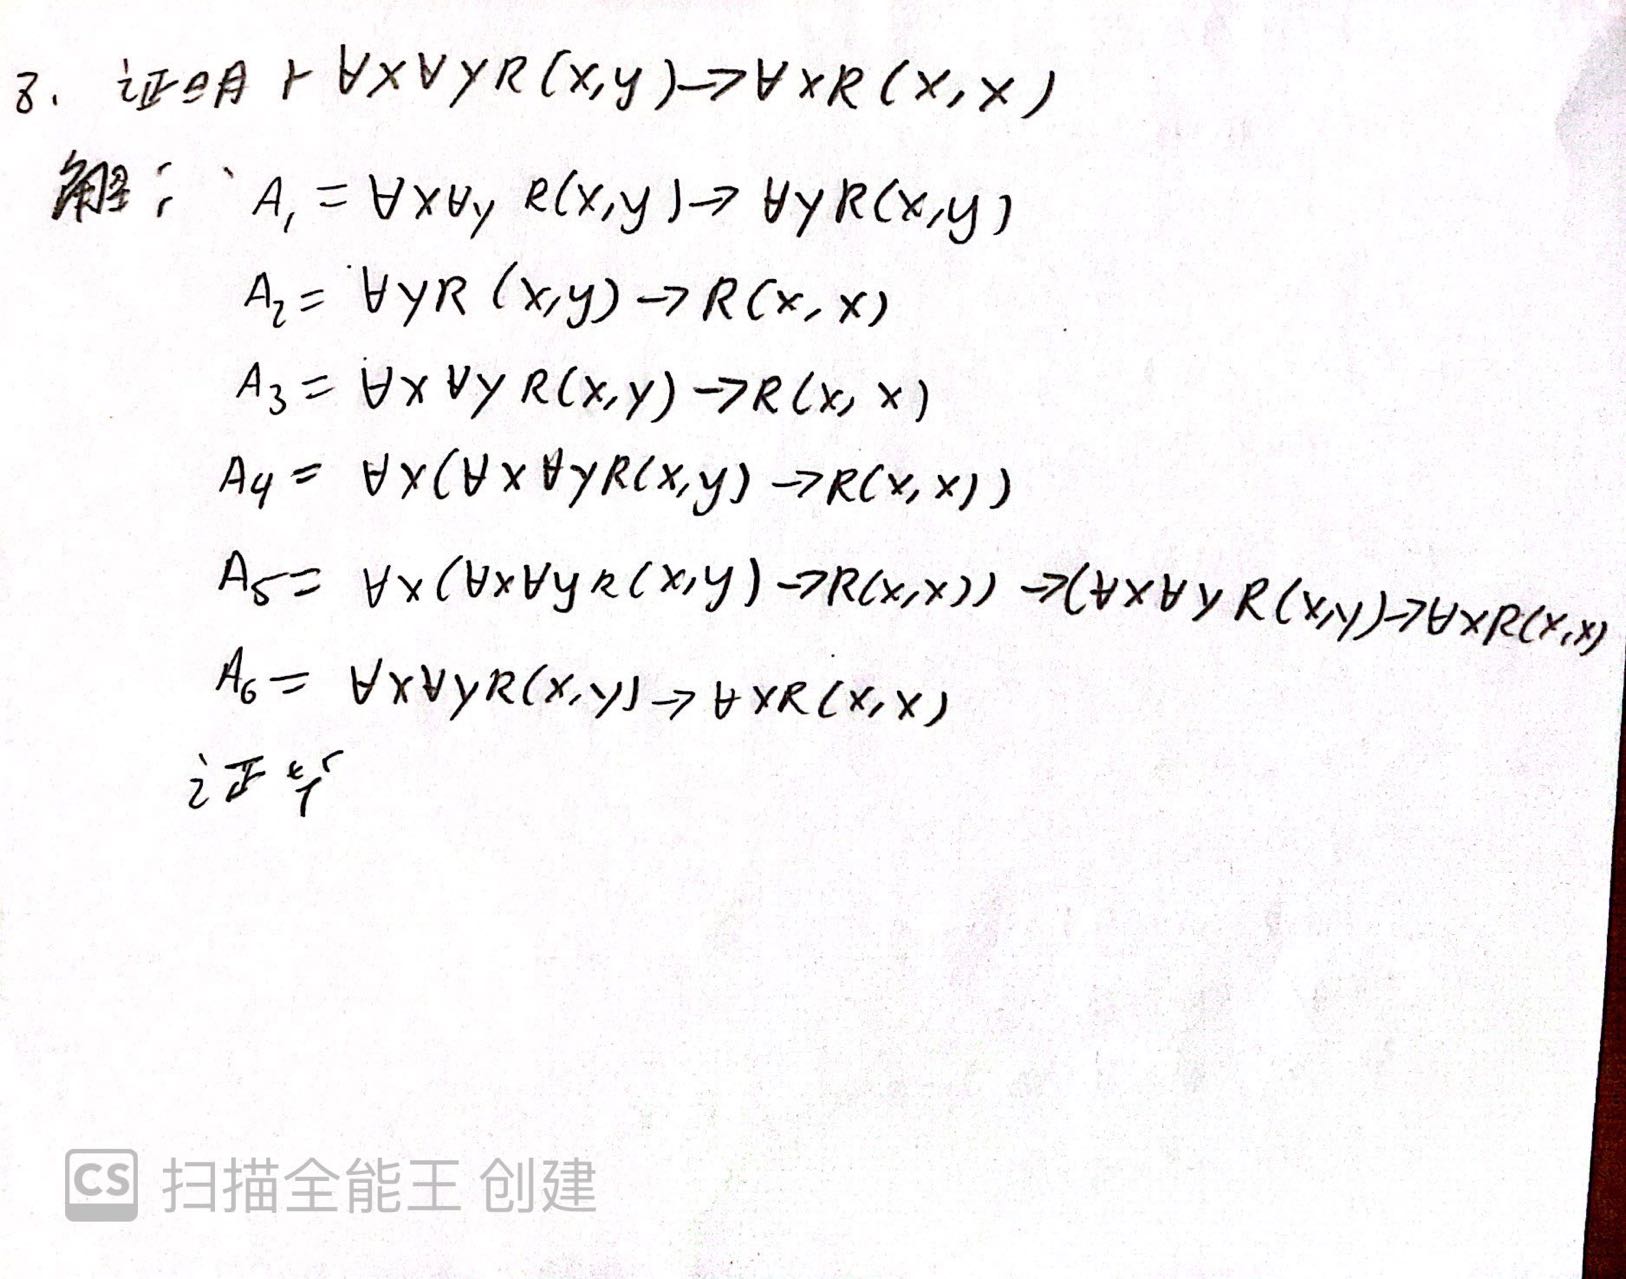 8. 证明 ⊢ ∀x∀yR(x,y)→∀xR(x,x)
解: A₁ = ∀x∀y R(x,y)→ ∀yR(x,y)
A₂ = ∀yR (x,y)→R(x,x)
A₃ = ∀x∀yR(x,y)→R(x,x)
A₄ = ∀x(∀x∀yR(x,y)→R(x,x))
A₅ = ∀x(∀x∀yR(x,y)→R(x,x))→(∀x∀yR(x,y)→∀xR(x,x)
A₆ = ∀x∀yR(x,y)→∀xR(x,x)
证毕
CS 扫描全能王 创建